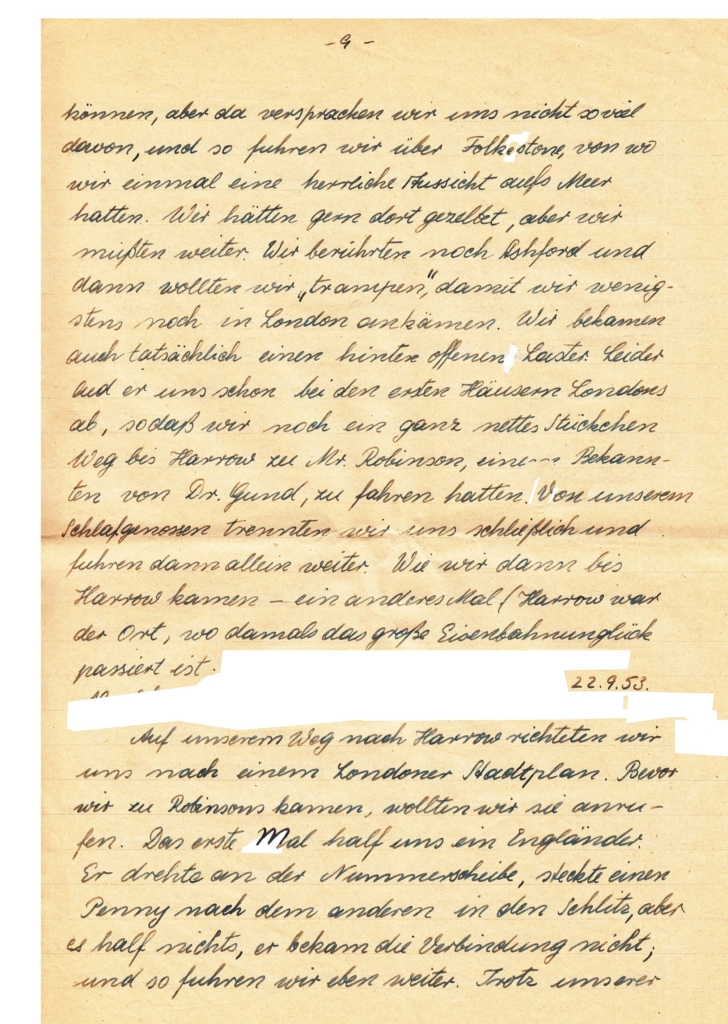 - 9 -
können, aber da versprachen wir uns nicht soviel
davon, und so fuhren wir über Folkestone, von wo
wir einmal eine herrliche Aussicht aufs Meer
hatten. Wir hätten gern dort gezeltet, aber wir
mußten weiter. Wir berührten noch Ashford und
dann wollten wir „trampen“, damit wir wenig-
stens noch in London ankämen. Wir bekamen
auch tatsächlich einen hinten offenen Laster. Leider
lud er uns schon bei den ersten Häusern Londons
ab, sodaß wir noch ein ganz nettes Stückchen
Weg bis Harrow zu Mr. Robinson, eine--- Bekann-
ten von Dr. Gund, zu fahren hatten. Von unserem
Schlafgenossen trennten wir uns schließlich und
fuhren dann allein weiter. Wie wir dann bis
Harrow kamen – ein anderes Mal (Harrow war
der Ort, wo damals das große Eisenbahnunglück
passiert ist.
22.9.53.
Auf unserem Weg nach Harrow richteten wir
uns nach einem Londoner Stadtplan. Bevor
wir zu Robinsons kamen, wollten wir sie anru-
fen. Das erste Mal half uns ein Engländer.
Er drehte an der Nummerscheibe, steckte einen
Penny nach dem anderen in den Schlitz, aber
es half nichts, er bekam die Verbindung nicht;
und so fuhren wir eben weiter. Trotz unserer